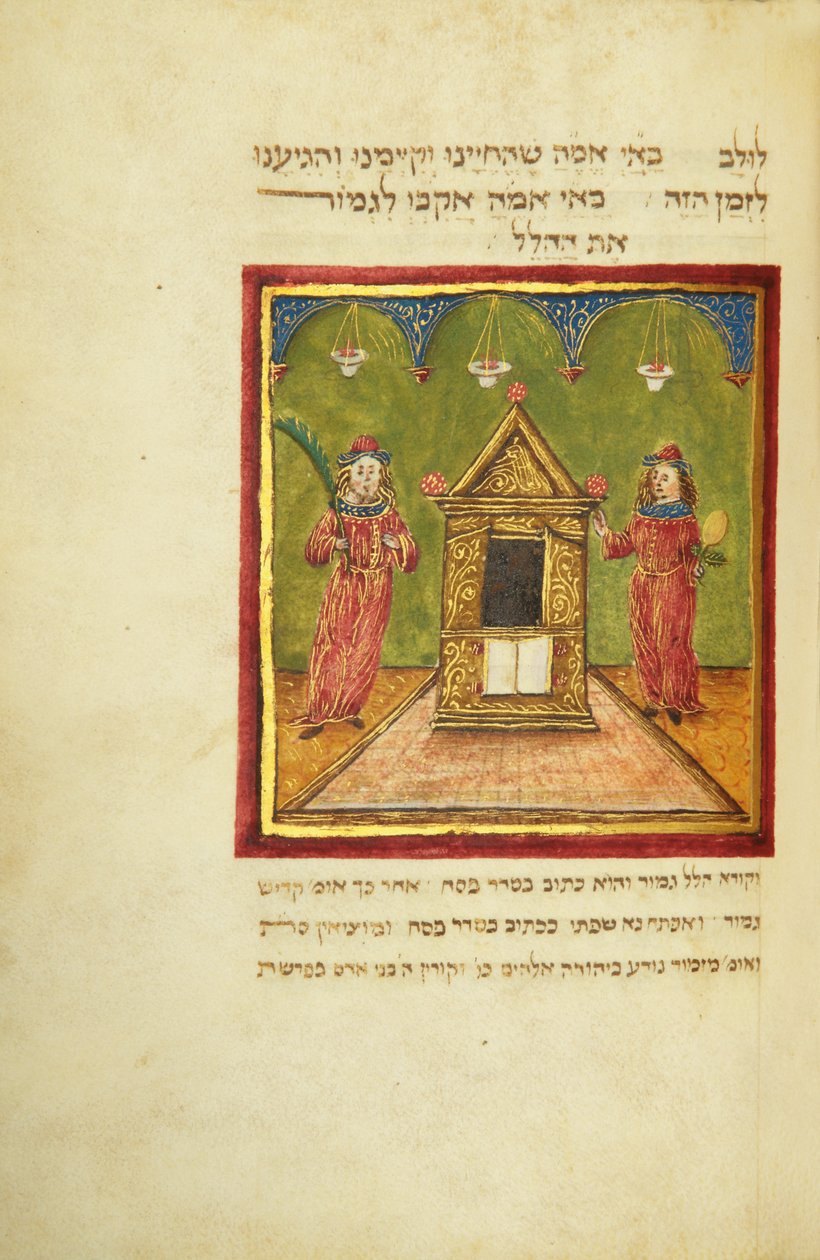 לולב באי אמה שהחיינו וקיימנו והגיענו
לזמן הזה באי אמה אקבו לגמור
את ההלל
וקורא הלל גמור והוא כתוב בסדר פסח אחר כך אומ' קדיש
גמור ואפתח נא שפתי ככתוב בסדר פסח ומוציאין
ואומ' מזמור נודע ביהודה אלהים כו' וקורין ה' בני אדם בפרשת